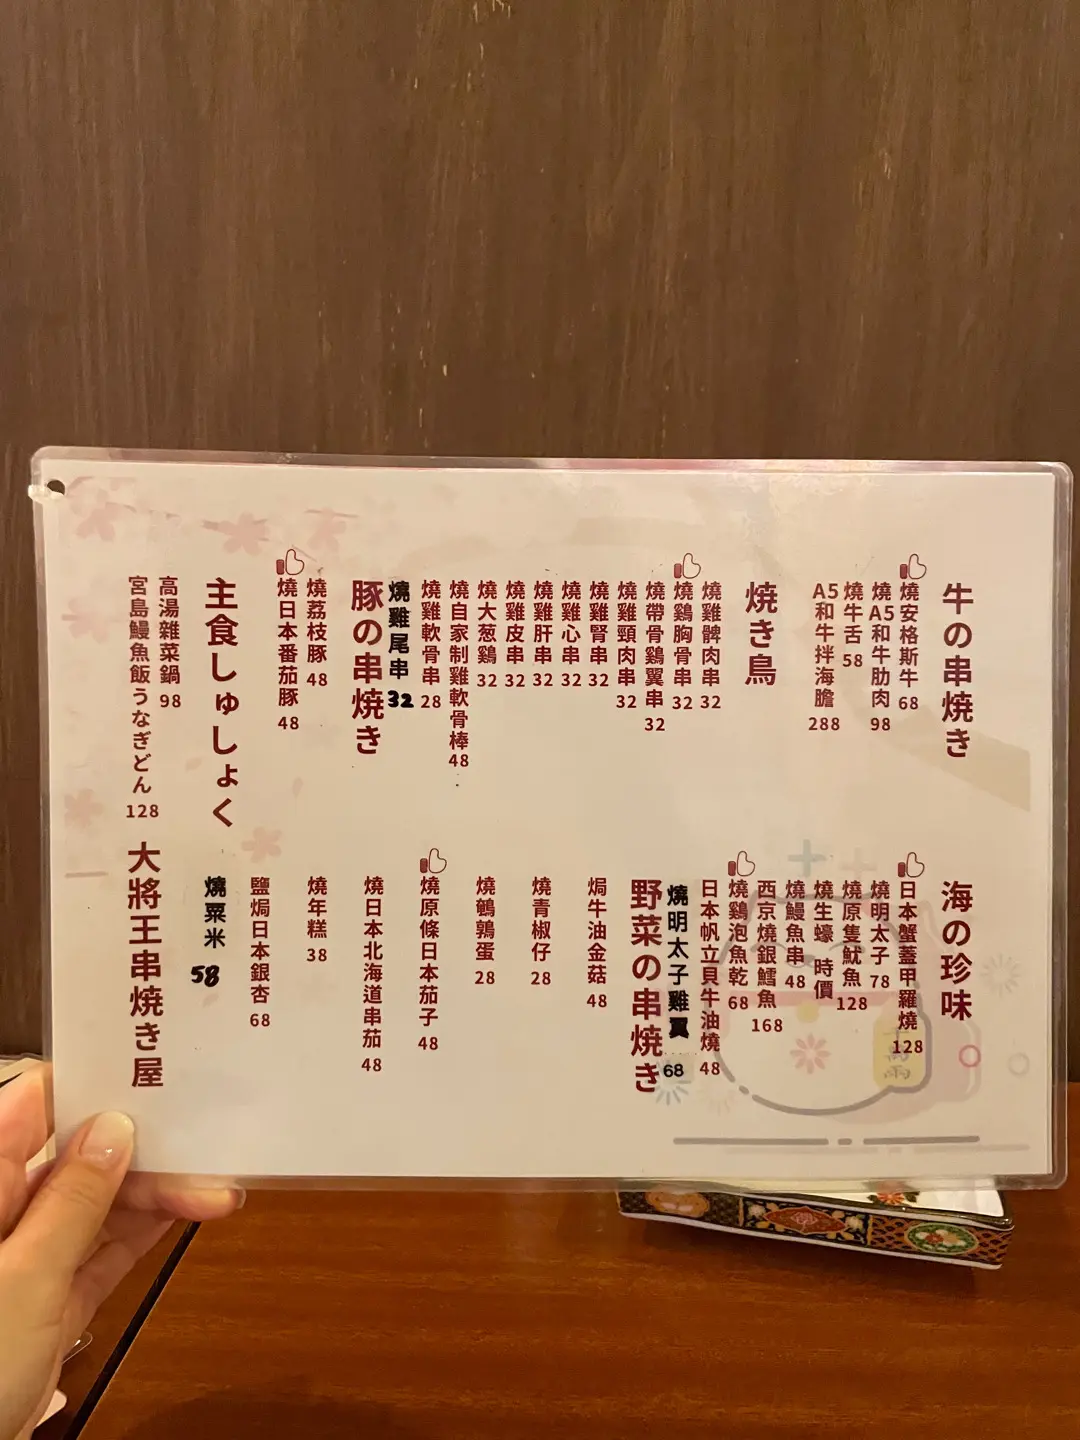 牛の串焼き
燒安格斯牛 68
燒A5和牛肋肉 98
燒牛舌 58
A5和牛拌海膽 288
焼き鳥
燒雞髀肉串 32
燒鷄胸骨串 32
燒帶骨鷄翼串 32
燒雞頸肉串 32
燒雞腎串 32
燒雞心串 32
燒雞肝串 32
燒雞皮串 32
燒大葱鷄 32
燒自家制雞軟骨棒 48
燒雞軟骨串 28
燒雞尾串 32
豚の串焼き
燒荔枝豚 48
燒日本番茄豚 48
主食しゅしょく
高湯雜菜鍋 98
宮島鰻魚飯うなぎどん 128
海の珍味
日本蟹蓋甲羅燒 128
燒明太子 78
燒原隻魷魚 128
燒生蠔 時價
燒鰻魚串 48
西京燒銀鱈魚 168
燒鷄泡魚乾 68
日本帆立貝牛油燒 48
燒明太子雞翼 68
野菜の串焼き
焗牛油金菇 48
燒青椒仔 28
燒鵪鶉蛋 28
燒原條日本茄子 48
燒日本北海道串茄 48
燒年糕 38
鹽焗日本銀杏 68
燒粟米 58
大將王串焼き屋
千萬両